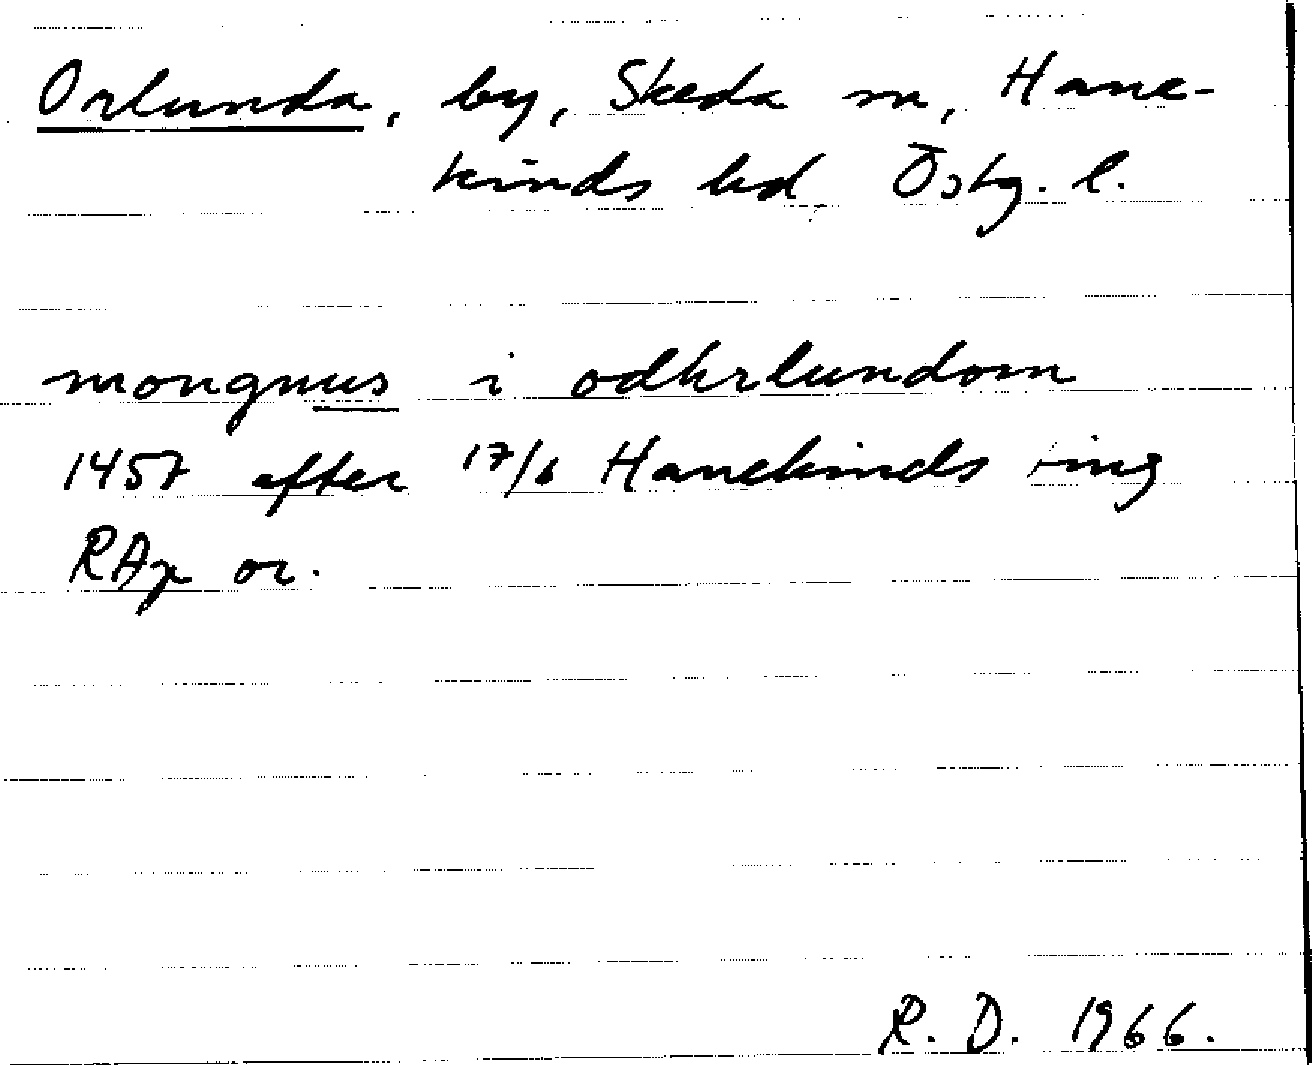 Orlunda, by, Skeda sn, Hane-
kinds hd, Östg. l.
mongnus i odhrlundom
1457 efter 17/6 Hanekinds ting
RAp or.
R. D. 1966.